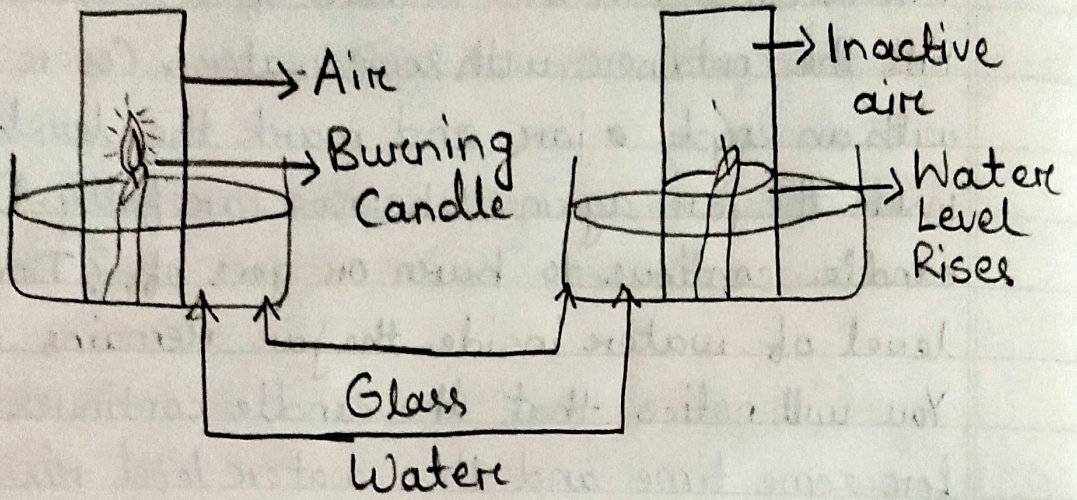 Air
Burning
Candle
Inactive
air
Water
Level
Rises
Glass
Water